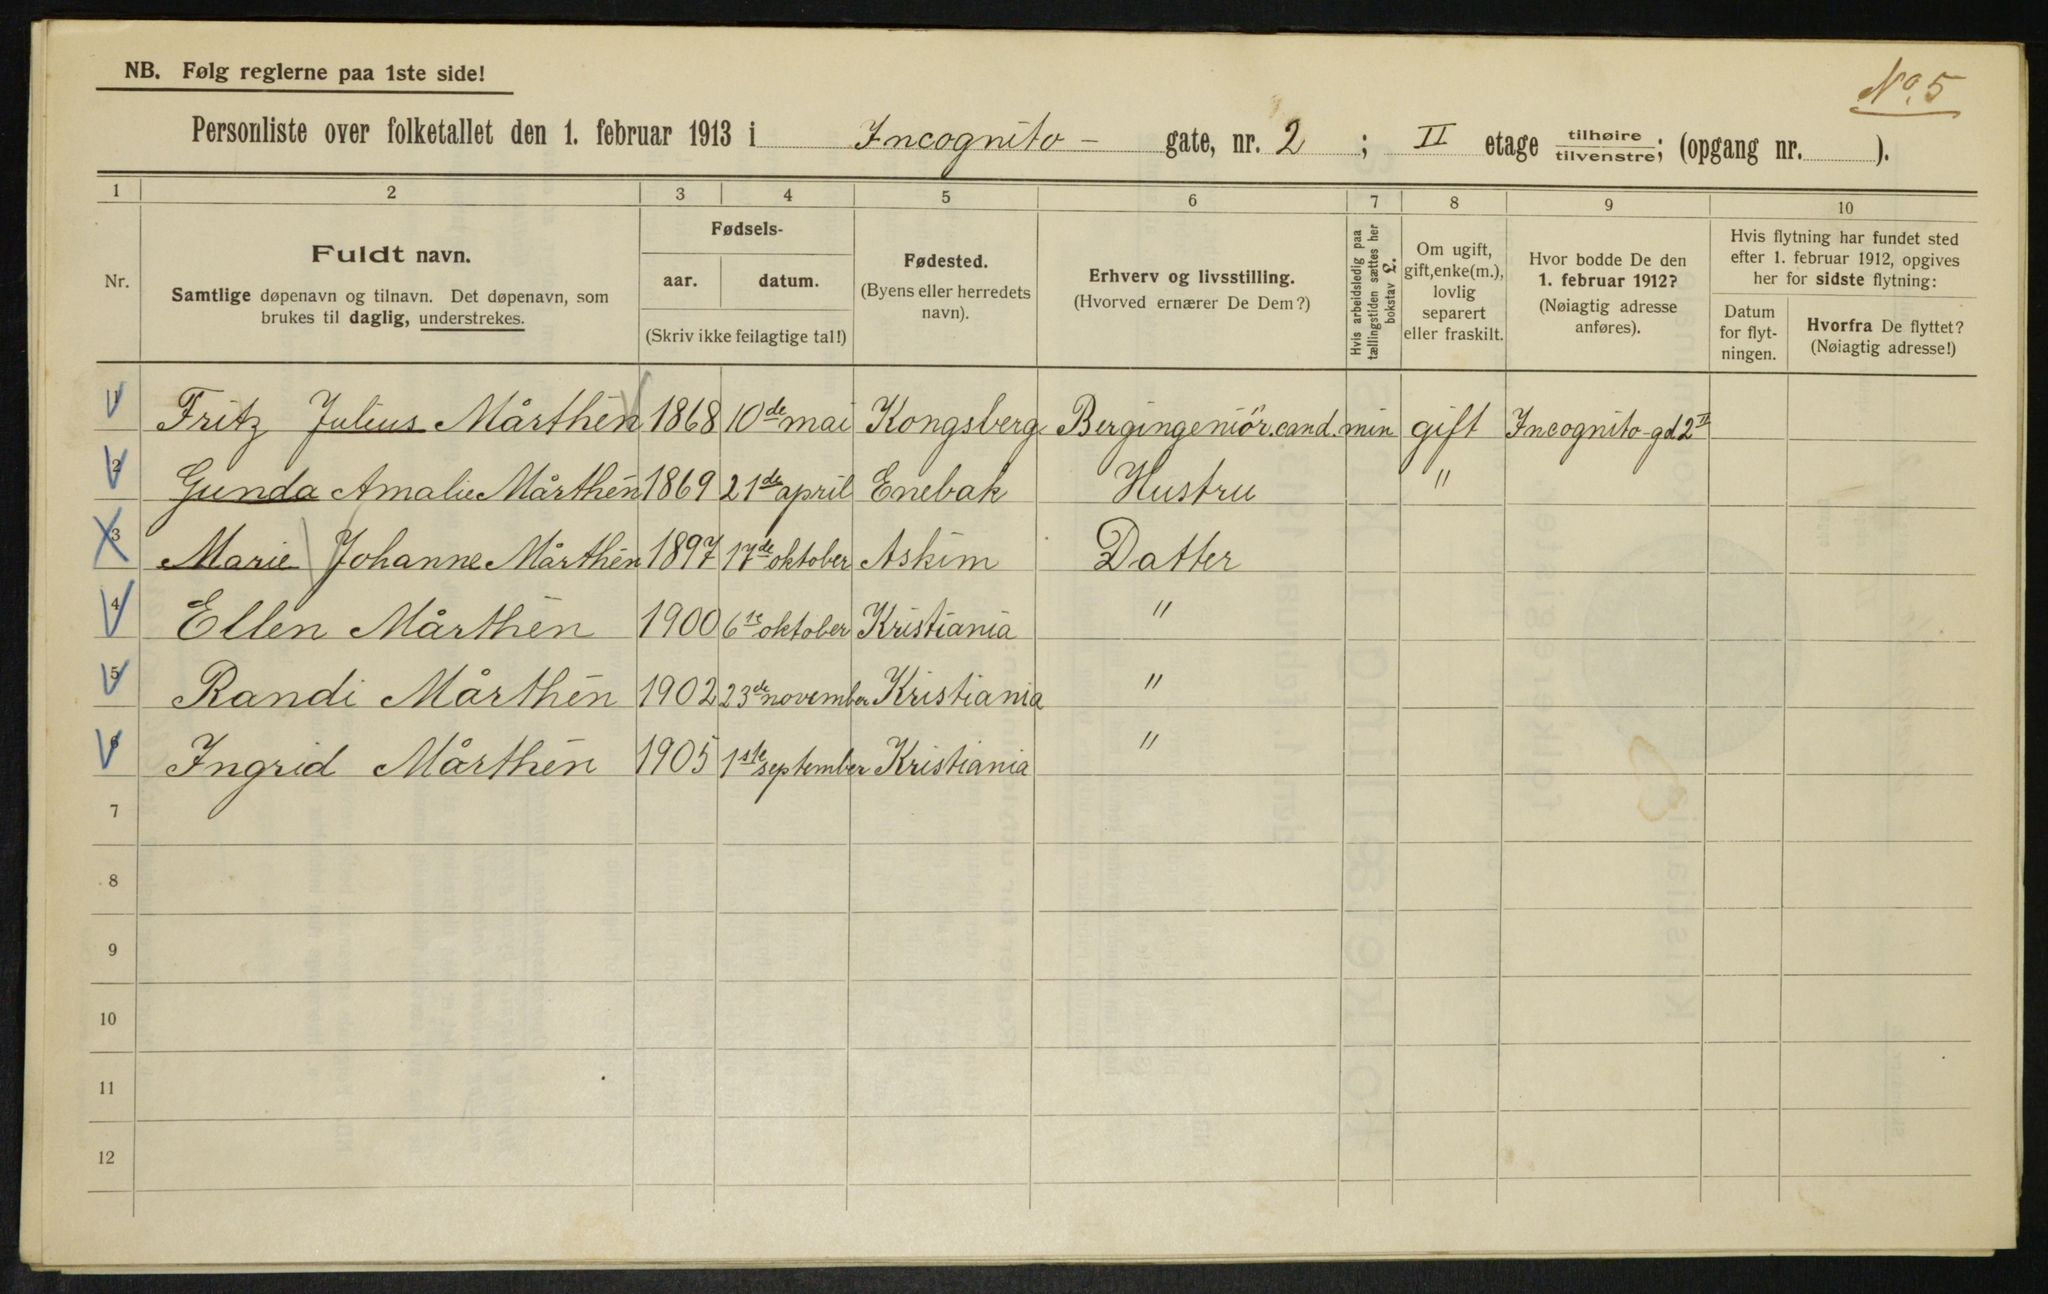 No. 5
NB. Følg reglerne paa 1ste side!
Personliste over folketallet den 1. februar 1913 i Incognito- gate, nr. 2 ; II etage tilhøire/tilvenstre; (opgang nr. ).
1 2 3 4 5 6 7 8 9 10
Nr.
Fuldt navn.
Samtlige døpenavn og tilnavn. Det døpenavn, som
brukes til daglig, understrekes.
Fødsels-
aar. datum.
(Skriv ikke feilagtige tal!)
Fødested.
(Byens eller herredets
navn).
Erhverv og livsstilling.
(Hvorved ernærer De Dem?)
Hvis arbeidsledig paa
tællingstiden sættes her
bokstav L.
Om ugift,
gift, enke(m.),
lovlig
separert
eller fraskilt.
Hvor bodde De den
1. februar 1912?
(Nøiagtig adresse
anføres).
Hvis flytning har fundet sted
efter 1. februar 1912, opgives
her for sidste flytning:
Datum
for flyt-
ningen.
Hvorfra De flyttet?
(Nøiagtig adresse!)
1 Fritz Julius Mårthén 1868 10de mai Kongsberg Bergingeniör. cand. min gift Incognito-gd 2 II
2 Gunda Amalie Mårthén 1869 21de april Enebak Hustru "
3 Marie Johanne Mårthén 1897 17de oktober Askim Datter
4 Ellen Mårthén 1900 6te oktober Kristiania "
5 Randi Mårthén 1902 23de november Kristiania "
6 Ingrid Mårthén 1905 1ste september Kristiania "
7
8
9
10
11
12